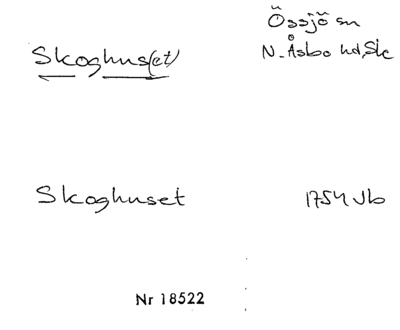 Össjö sn
Skoghus(et)
N. Åsbo hd, Sk
Skoghuset 1754 Jb
Nr 18522